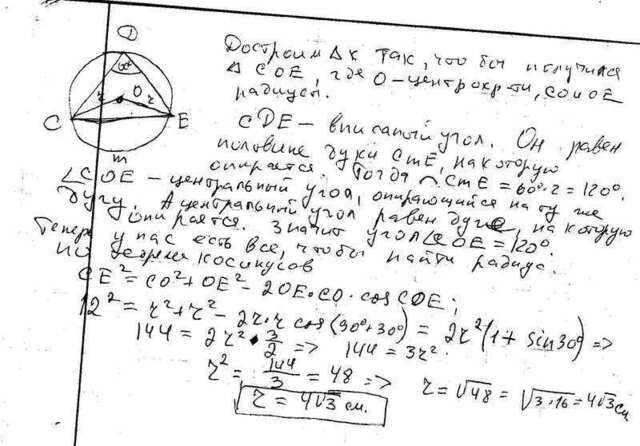 D
60°
r
O
r
C
E
m
Достроим Δк так, что бы получился
Δ COE, где O – центр окр-ти, CO и OE
радиусы.
CDE – вписаный угол. Он равен
половине дуги CmE, на которую
опирается. Тогда ◠CmE = 60°·2 = 120°.
∠COE – центральный угол, опирающийся на ту же
дугу. А центральный угол равен дуге, на которую
опирается. Значит угол ∠COE = 120°.
Теперь у нас есть все, чтобы найти радиус.
По теореме косинусов
CE² = CO² + OE² – 2OE·CO·cosCOE;
12² = r² + r² – 2r·r cos(90°+30°) = 2r²(1 + sin30°) =>
144 = 2r² · 3/2 => 144 = 3r².
r² = 144/3 = 48 => r = √48 = √3·16 = 4√3 см
r = 4√3 см.